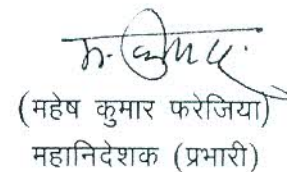 (महेष कुमार फरेजिया)
महानिदेशक (प्रभारी)